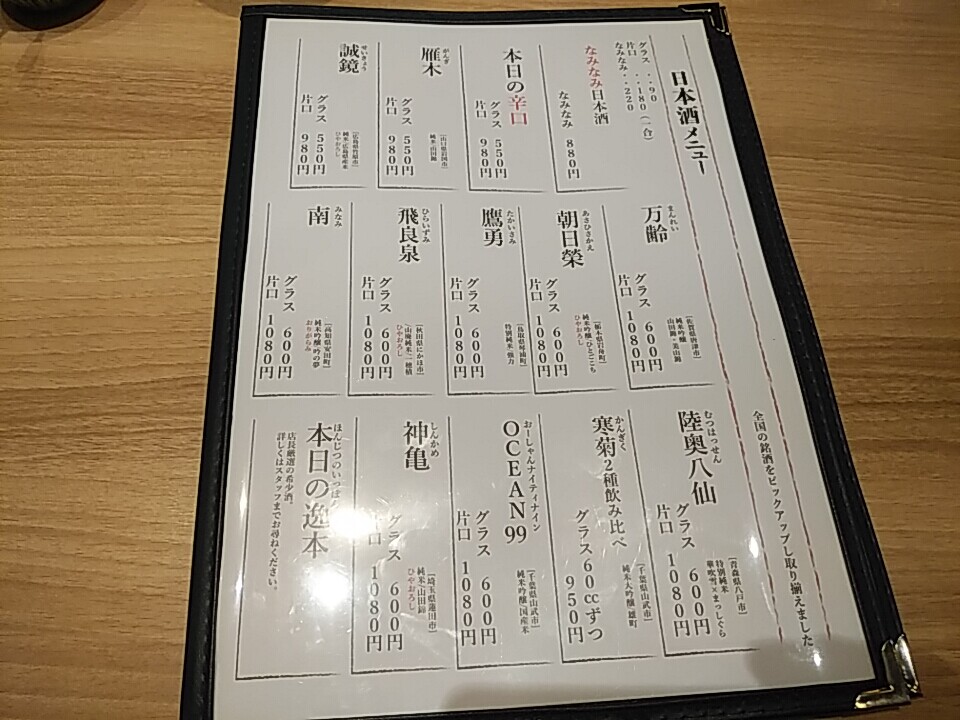 日本酒メニュー
全国の銘酒をピックアップし取り揃えました
グラス・・・90
片口・・・180(一合)
なみなみ・・・220
なみなみ日本酒
なみなみ 880円
本日の辛口
グラス 550円
片口 980円
がんぎ
雁木
[山口県岩国市]
純米/山田錦
グラス 550円
片口 980円
せいきょう
誠鏡
[広島県竹原市]
純米/広島県産米
ひやおろし
グラス 550円
片口 980円
まんれい
万齢
[佐賀県唐津市]
純米吟醸
山田錦×美山錦
グラス 600円
片口 1080円
あさひさかえ
朝日榮
[栃木県岩舟町]
純米吟醸/ひとごこち
ひやおろし
グラス 600円
片口 1080円
たかいさみ
鷹勇
[鳥取県琴浦町]
特別純米/強力
グラス 600円
片口 1080円
ひらいずみ
飛良泉
[秋田県にかほ市]
山廃純米/一穂積
ひやおろし
グラス 600円
片口 1080円
みなみ
南
[高知県安田町]
純米吟醸/吟の夢
おりがらみ
グラス 600円
片口 1080円
むつはっせん
陸奥八仙
[青森県八戸市]
特別純米
華吹雪×まっしぐら
グラス 600円
片口 1080円
かんぎく
寒菊2種飲み比べ
[千葉県山武市]
純米大吟醸/雄町
グラス60ccずつ
950円
おーしゃんナイティナイン
OCEAN99
[千葉県山武市]
純米吟醸/国産米
グラス 600円
片口 1080円
しんかめ
神亀
[埼玉県蓮田市]
純米/山田錦
ひやおろし
グラス 600円
片口 1080円
ほんじつのいっぽん
本日の逸本
店長厳選の希少酒。
詳しくはスタッフまでお尋ねください。